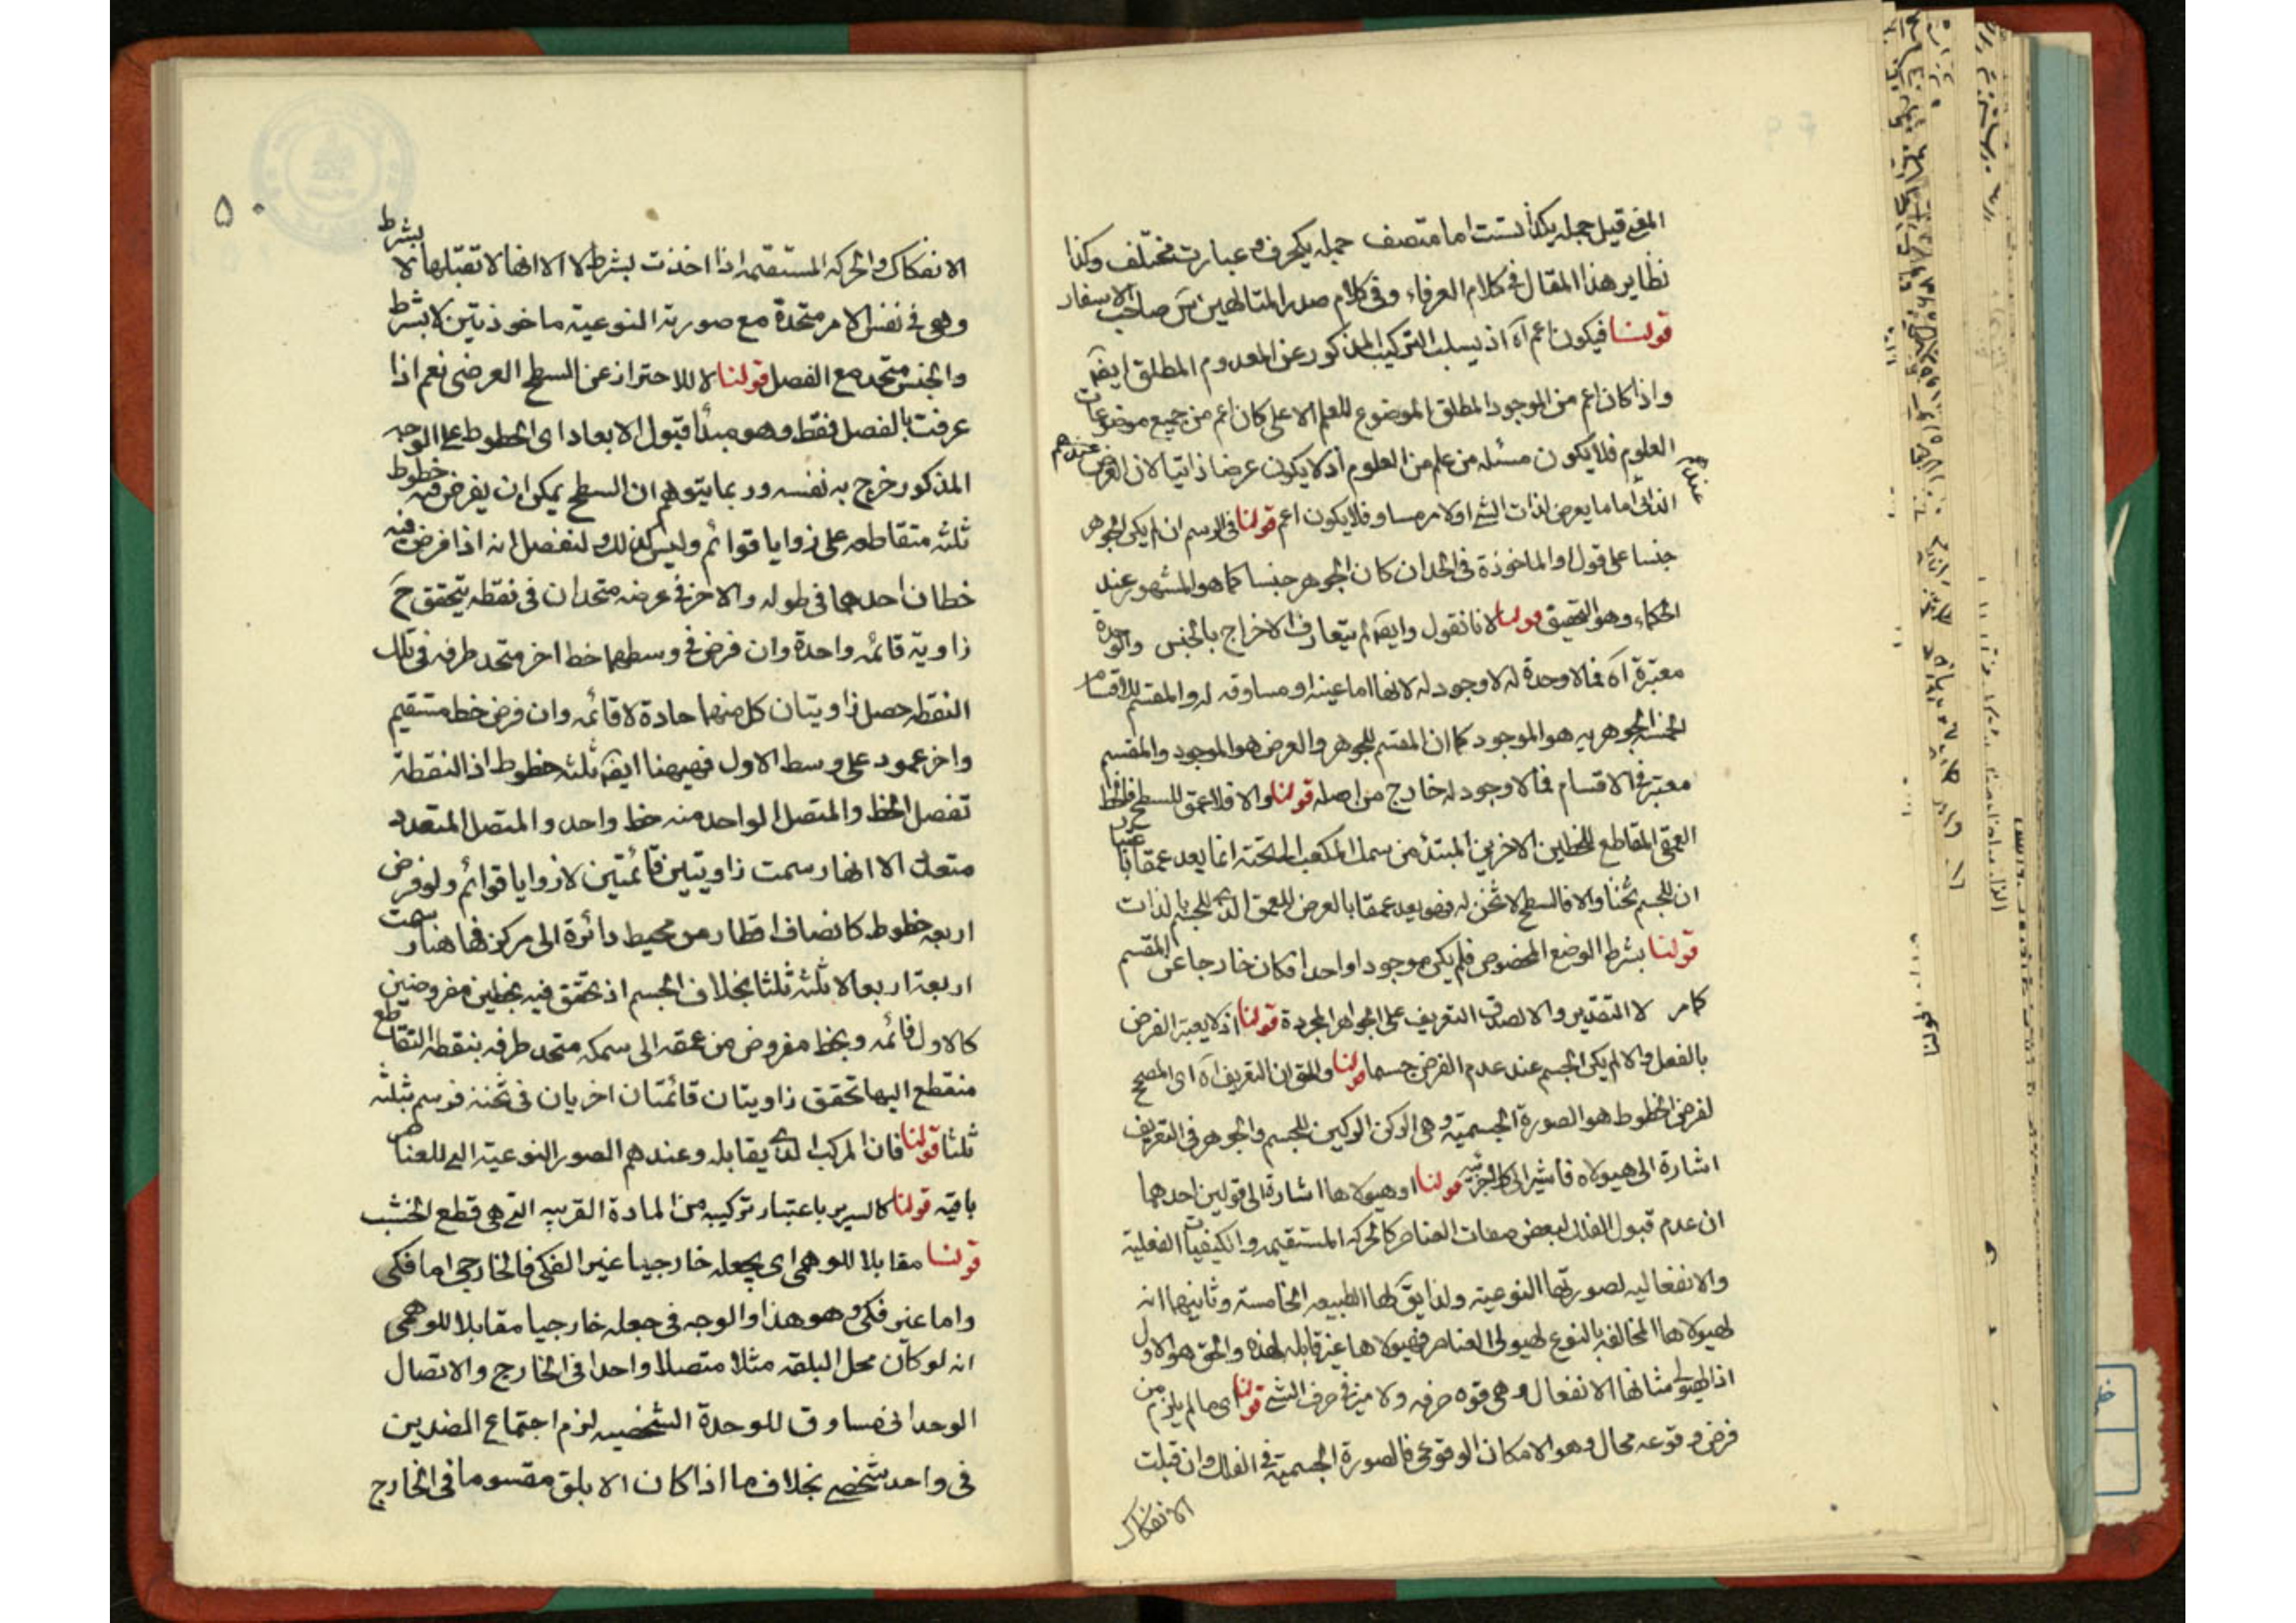 المغ قيل جمله يكذاتست اما متصف جمله يكحرف و عبارت مختلف وكذا
نظاير هذا المقال فى كلام العرفاء وفى كلام صدر المتالهين س صاحب الاسفار
قولنا فيكون اعم آه اذ يسلب التركيب المذكور عن المعدوم المطلق ايضا
واذا كان اعم من الموجود المطلق الموضوع للعلم الاعلى كان اعم من جميع موضوعات
العلوم فلا يكون مسئله من علم من العلوم اذ لا يكون عرضا ذاتيا لان العرض عندهم
الذاتى اما ما يعرض لذات الشئ او لامر مساو فلا يكون اعم قولنا فى الرسم ان لم يكن الجوهر
جنسا على قول او الماخوذة فى الحد ان كان الجوهر جنسا كما هو المشهور عند
الحكماء وهو التحقيق قولنا لانا نقول وايضا لم يتعارف الاخراج بالجنس والوحدة
معتبرة آه فما لا وحدة له لا وجود له لانها اما عينه او مساوقه له والمقسم للاقسام
الخمسة الجوهريه هو الموجود كما ان المقسم للجوهر والعرض هو الموجود والمقسم
معتبر فى الاقسام فما لا وجود له خارج من اصله قولنا والا فلا عمق للسطح فالخط
العمقى المقاطع للخطين الاخرين المبتدء من سمك المكعب الى تحته انما يعد عمقا باعتبار
ان للجسم ثخنا والا فالسطح لا ثخن له فهو يعد عمقا بالعرض للعمق الذى للجسم بالذات
قولنا بشرط الوضع المخصوص فلم يكن موجودا واحدا فكان خارجا عن المقسم
كما مر لا التقدير والا لصدق التعريف على الجواهر المجردة قولنا اذ لا يعتبر الفرض
بالفعل والا لم يكن الجسم عند عدم الفرض جسما قولنا والحق ان التعريف آه اى المصحح
لفرض الخطوط هو الصورة الجسمية وهى الركن الركين للجسم والجوهر فى التعريف
اشارة الى هيولاه فاشير الى كلا جزئيه قولنا او هيولاها اشارة الى قولين احدهما
ان عدم قبول الفلك لبعض صفات العناصر كالحركه المستقيمه والكيفيات الفعلية
والانفعاليه لصورتها النوعية ولذا يق لها الطبيعه الخامسة وثانيهما انه
لهيولاها المخالفه بالنوع لهيولى العناصر فهيولاها غير قابله لهذه والحق هو الاول
اذ الهيولى شانها الانفعال وهى قوه صرفه ولا ميز فى صرف الشئ قولنا اى ما لم يلزم من
فرض وقوعه محال وهو الامكان الوقوعى فالصورة الجسمية فى الفلك وان قبلت
الانفكاك
عندهم
۵۰
الانفكاك والحركه المستقيمه اذا اخذت بشرط لا الا انها لا تقبلها لا بشرط
وهى فى نفس الامر متحدة مع صورته النوعية ماخوذتين لا بشرط
والجنس متحد مع الفصل قولنا لا للاحتراز عن السطح العرضى نعم اذا
عرفت بالفصل فقط وهو مبدأ قبول الابعاد اى الخطوط على الوجه
المذكور خرج به نفسه وربما يتوهم ان السطح يمكن ان يفرض فيه خطوط
ثلثه متقاطعه على زوايا قوائم وليس كذلك ولنفصل انه اذا فرض فيه
خطان احدهما فى طوله والاخر فى عرضه متحدان فى نقطه يتحقق ح
زاوية قائمه واحدة وان فرض فى وسطهما خط اخر متحد طرفه فى تلك
النقطه حصل زاويتان كل منهما حادة لا قائمه وان فرض خط مستقيم
واخر عمود على وسط الاول فهيهنا ايضا ثلثه خطوط اذ النقطة
تفصل الخط والمتصل الواحد منه خط واحد والمتصل المتعدد
متعدد الا انها رسمت زاويتين قائمتين لا زوايا قوائم ولو فرض
اربعه خطوط كانصاف اقطار من محيط دائرة الى مركزها فهنا رسمت
اربعة اربعا لا ثلثه ثلثا بخلاف الجسم اذ تحقق فيه بخطين مفروضين
كالاول قائمه وبخط مفروض من عمقه الى سمكه متحد طرفه بنقطه التقاطع
منقطع اليها تحقق زاويتان قائمتان اخريان فى ثخنه فرسم بثلثه
ثلثا قولنا فان المركب الذى يقابله وعندهم الصور النوعية التى للعناصر
باقيه قولنا كالسرير باعتبار تركيبه من المادة القريبه التى هى قطع الخشب
قولنا مقابلا للوهمى اى يجعله خارجيا غير الفكى فالخارجى اما فكى
واما غير فكى وهو هذا والوجه فى جعله خارجيا مقابلا للوهمى
انه لو كان محل البلقه مثلا متصلا واحدا فى الخارج والاتصال
الوحدانى مساوق للوحدة الشخصيه لزم اجتماع الضدين
فى واحد شخصى بخلاف ما اذا كان الابلق مقسوما فى الخارج